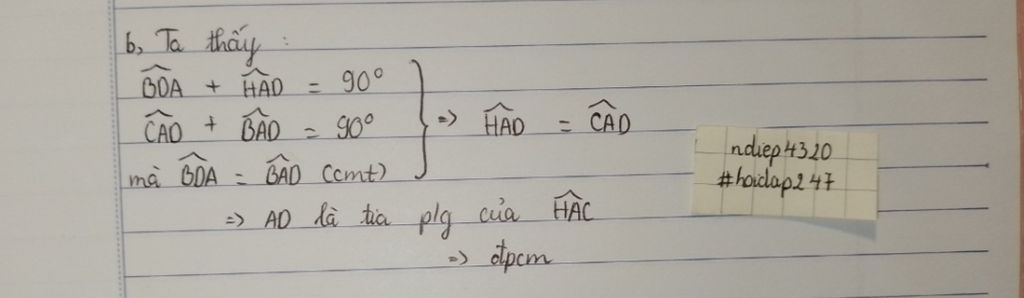 b, Ta thấy :
B̂DA + ĤAD = 90°
ĈAD + B̂AD = 90°
mà B̂DA = B̂AD (cmt)
=> ĤAD = ĈAD
=> AD là tia p/g của ĤAC
=> đpcm
ndiep4320
#hoidap247